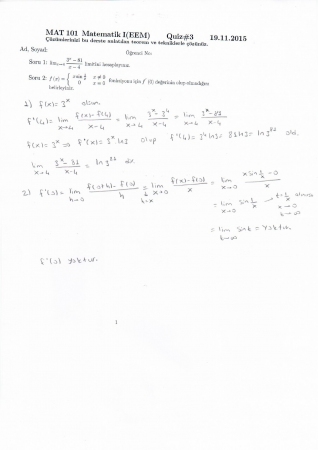 MAT 101 Matematik I(EEM) Quiz#3 19.11.2015
Çözümlerinizi bu derste anlatılan teorem ve tekniklerle çözünüz.
Ad, Soyad: Öğrenci No:
Soru 1: lim_{x→4} (3^x − 81)/(x − 4) limitini hesaplayınız.
Soru 2: f(x) = { sin 1/x x ≠ 0, 0 x = 0 fonksiyonu için f′(0) değerinin olup olmadığını
belirleyiniz.
1) f(x) = 3^x olsun.
f'(4) = lim_{x→4} (f(x) - f(4))/(x-4) = lim_{x→4} (3^x - 3^4)/(x-4) = lim_{x→4} (3^x - 81)/(x-4)
f(x) = 3^x ⇒ f'(x) = 3^x ln3 olup f'(4) = 3^4 ln3 = 81 ln3 = ln 3^81 old.
lim_{x→4} (3^x - 81)/(x-4) = ln 3^81 dir
2) f'(0) = lim_{h→0} (f(0+h) - f(0))/h = lim_{x→0} (f(x) - f(0))/x = lim_{x→0} (x sin 1/x - 0)/x
h=x
= lim_{x→0} sin 1/x → t = 1/x olsun
x→0
t→∞
= lim_{t→∞} sin t = Yoktur.
f'(0) yoktur.
1